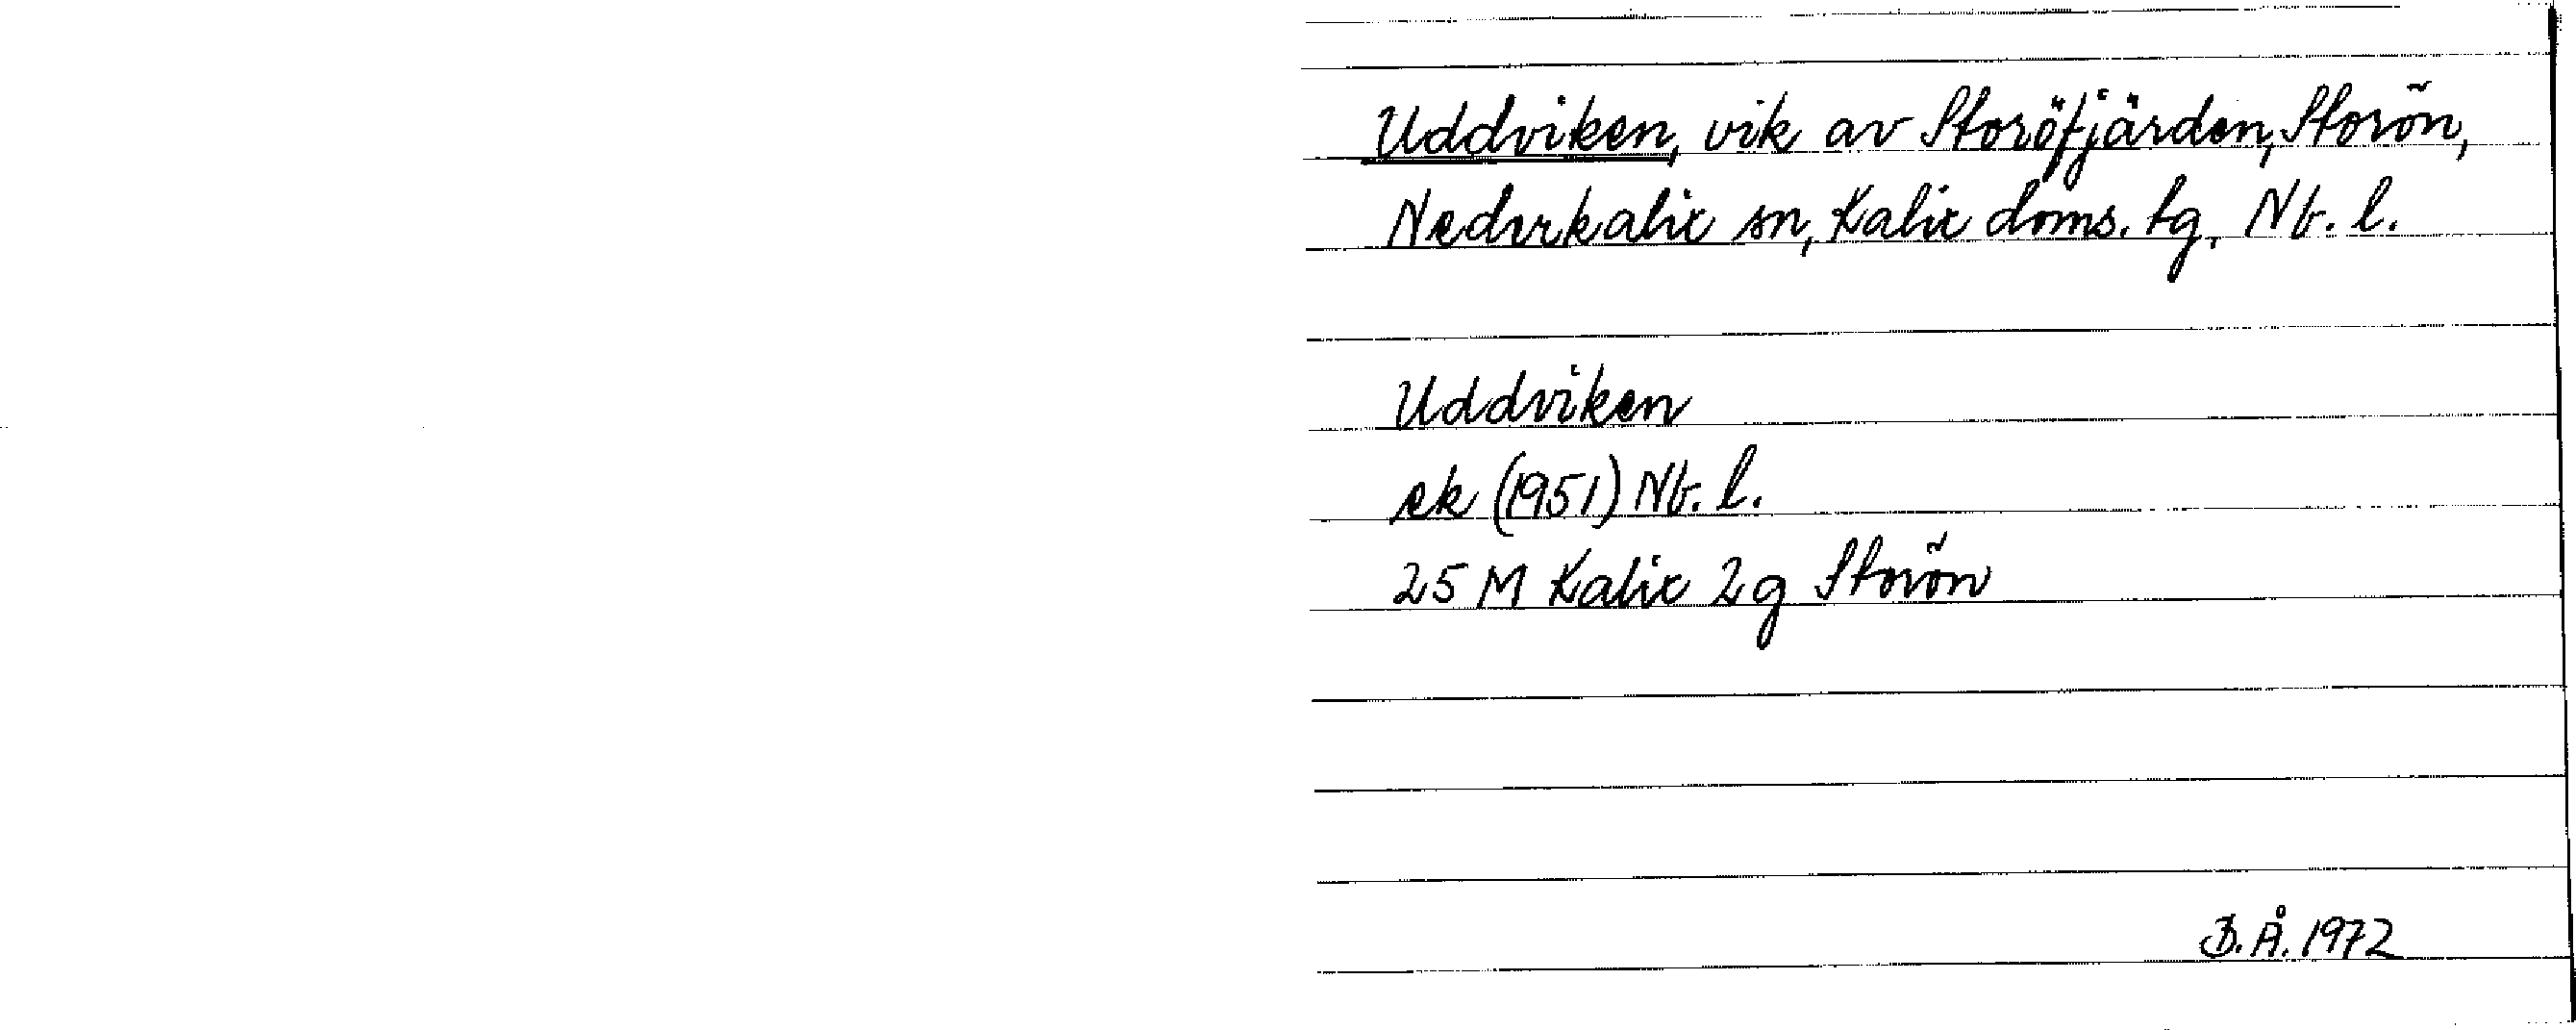 Uddviken, vik av Storöfjärden, Storön,
Nederkalix sn, Kalix doms. tg, Nb. l.
Uddviken
ek (1951) Nb. l.
25 M Kalix 2g Storön
B.Å. 1972